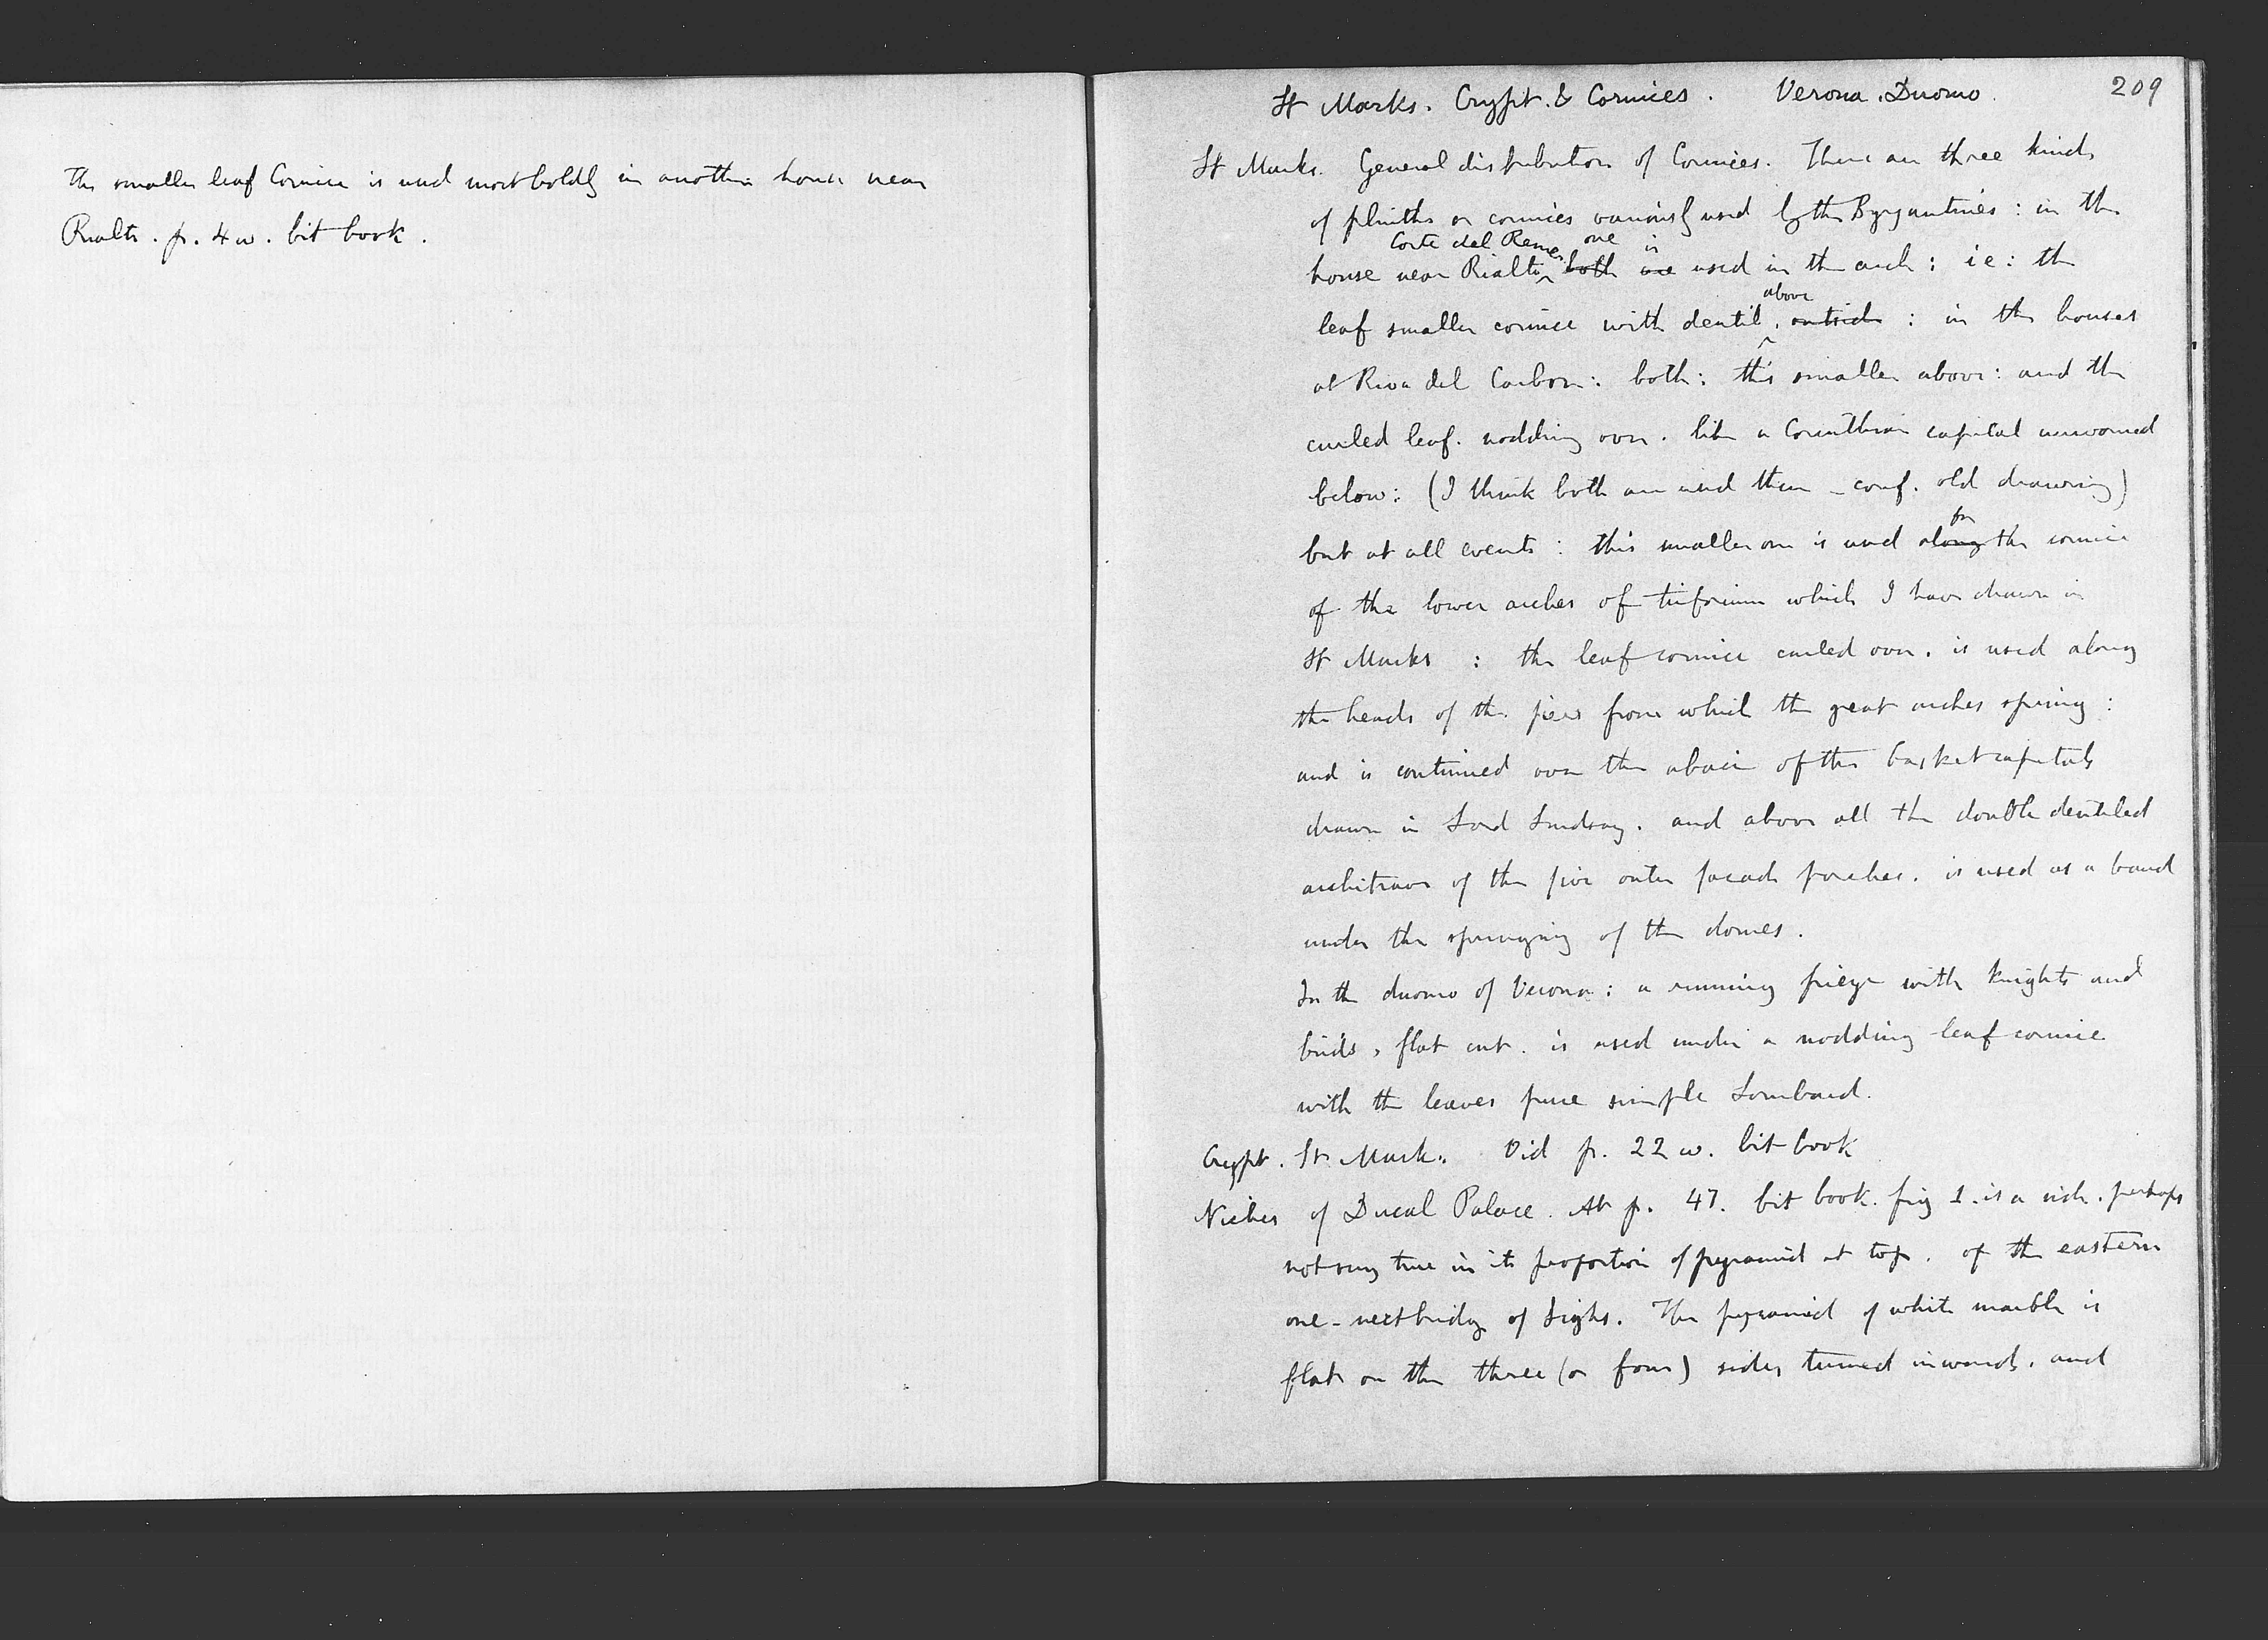 The smaller leaf Cornice is used most boldly in another house near
Rialto. p. 4 w. bit book.
St Marks. Crypt. & Cornices. Verona. Duomo. 209
St Marks. General distribution of Cornices. There are three kinds
of plinths or cornices variously used by the Byzantines: in the
Corte del Remer one is
house near Rialto ^ both are used in the arch: ie: the
above
leaf smaller cornice with dentil, ^ outside: in the houses
at Riva del Carbon: both: this smaller above: and the
curled leaf. nodding over. like a Corinthian capital
below: (I think both are used there - conf. old drawing)
for
but at all events: this smaller one is used along the cornice
of the lower arches of triforium which I have drawn in
St Marks: the leaf cornice curled over. is used along
the heads of the piers from which the great arches spring:
and is continued over the abaci of the basket capitals
drawn in Lord Lindsay. and above all the double dentiled
architrave of the five outer facade porches. is used as a band
under the springing of the domes.
In the duomo of Verona: a running frieze with knights and
birds, flat cut. is used under a nodding leaf cornice
with the leaves pure simple Lombard.
Crypt. St Marks. Vid p. 22 w. bit book
Niches of Ducal Palace. At p. 47. bit book. fig 1. is a , perhaps
not very true in its proportion of pyramid at top. of the eastern
one - next bridge of Sighs. The pyramid of white marble is
flat on the three (or four) sides turned inwards. and